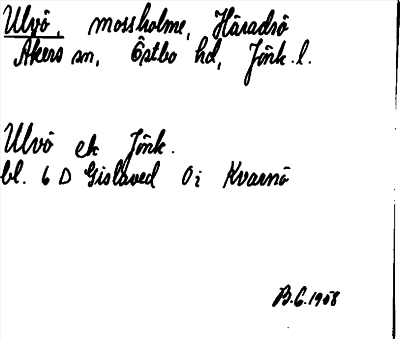 Ulvö, mossholme, Häradsö
Åkers sn, Östbo hd, Jönk. l.
Ulvö ek Jönk.
bl. 6 D Gislaved 0i Kvarnö
B.G. 1958